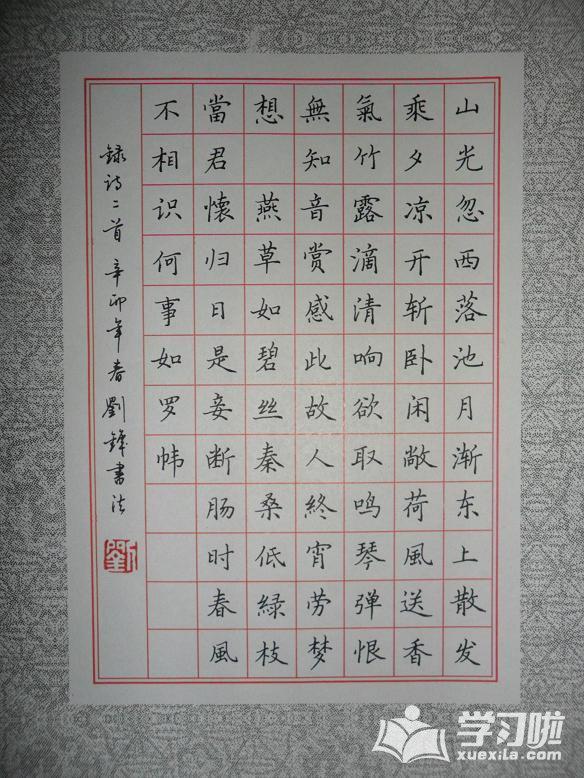 山光忽西落池月渐东上散发
乘夕凉开斩卧闲敞荷風送香
氣竹露滴清响欲取鸣琴弹恨
無知音赏感此故人終宵劳梦
想 燕草如碧丝秦桑低緑枝
當君懷归日是妾断肠时春風
不相识何事如罗帏
録诗二首 辛卯年春劉鋒書法
劉
学习啦
xuexila.com